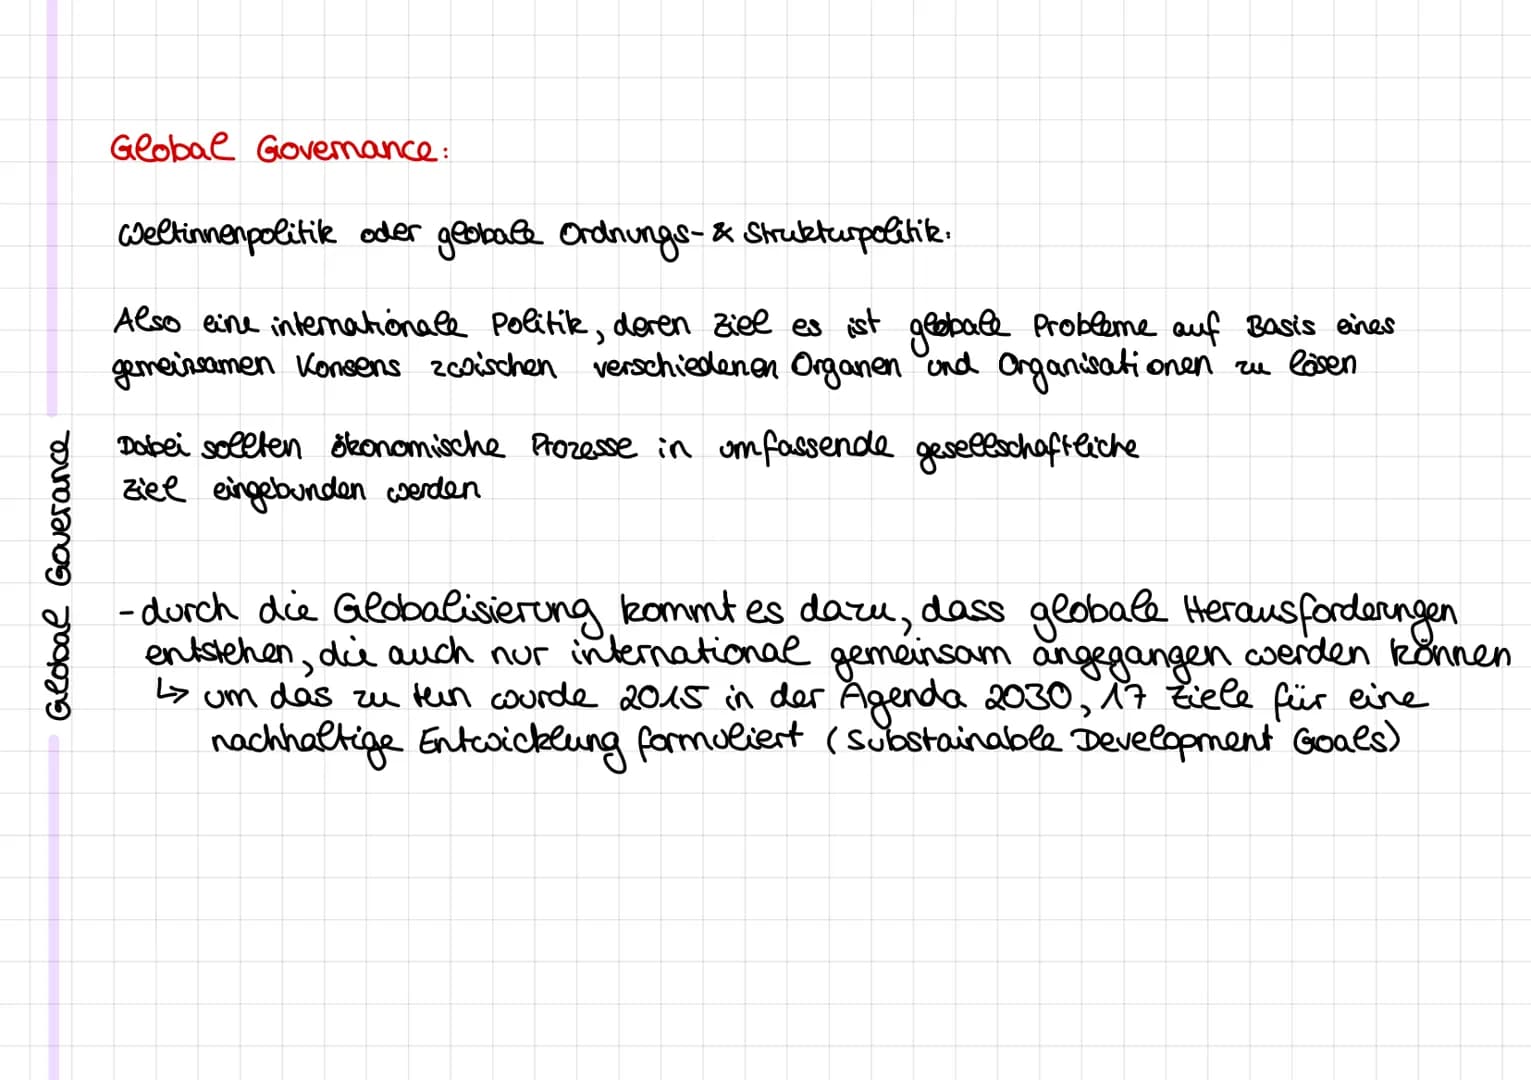 Global Governance:
Weltinnenpolitik oder globale Ordnungs- & Strukturpolitik.
Also eine internationale Politik, deren Ziel es ist globale Probleme auf Basis eines
gemeinsamen Konsens zwischen verschiedenen Organen und Organisationen zu lösen
Dabei sollten ökonomische Prozesse in umfassende gesellschaftliche
Ziel eingebunden werden
- durch die Globalisierung kommt es dazu, dass globale Herausforderungen
entstehen, die auch nur international gemeinsam angegangen werden können
↳ um das zu tun wurde 2015 in der Agenda 2030, 17 Ziele für eine
nachhaltige Entwicklung formuliert (Substainable Development Goals)
Global Goverance